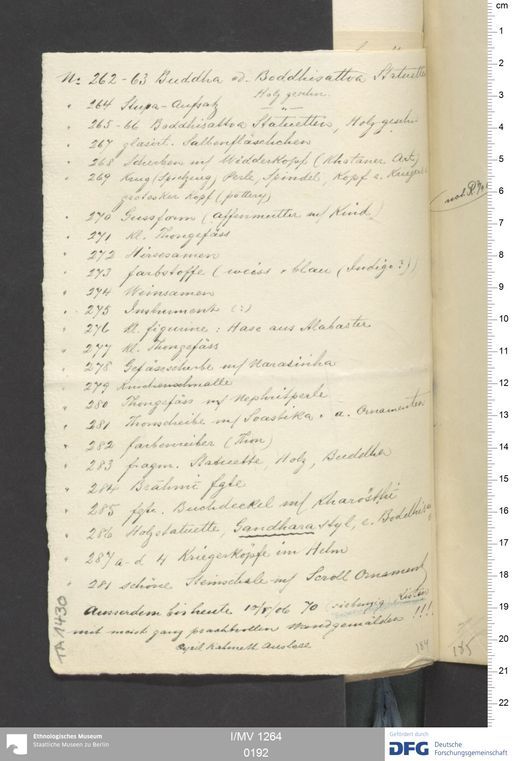 No 262-63 Buddha od. Boddhisattva Statuette
Holz geschn.
" 264 Stupa-Aufsatz — " —
" 265-66 Boddhisattva Statuetten, Holz geschn.
" 267 glasirt. Salbenfläschchen
" 268 Scherben m/ Widderkopf (Khotaner Art)
" 269 Krug (Spielzeug) Perle, Spindel, Kopf e. Kriegers
grotesker Kopf (pottery)
" 270 Gussform (Affenmutter m/ Kind)
" 271 kl. Thongefäss
" 272 Hirsesamen
" 273 Farbstoffe (weiss + blau (Indigo?))
" 274 Weinsamen
" 275 Instrument (?)
" 276 kl. figurine: Hase aus Alabaster
" 277 kl. Thongefäss
" 278 Gefässscherbe m/ Narasinha
" 279
" 280 Thongefäss m/ Nephritperle
" 281 Thonscheibe m/ Svastika + a. Ornamenten
" 282 Farbenreiber (Thon)
" 283 fragm. Statuette, Holz, Buddha
" 284 Brāhmī fgte
" 285 fgte. Buchdeckel m/ Kharōsthī
" 286 Holzstatuette, Gandharastyl, e. Bodhis.
" 287 a-d 4 Kriegerköpfe im Helm
" 281 schöne Steinschale m/ Scroll Ornament
Ausserdem bis heute 12/V/06 70 (siebenzig) Kisten
mit meist ganz prachtvollen Wandgemälden !!!
TA 1430
184
185
cm
1
2
3
4
5
6
7
8
9
10
11
12
13
14
15
16
17
18
19
20
21
22
Ethnologisches Museum
Staatliche Museen zu Berlin
I/MV 1264
0192
Gefördert durch
DFG Deutsche
Forschungsgemeinschaft